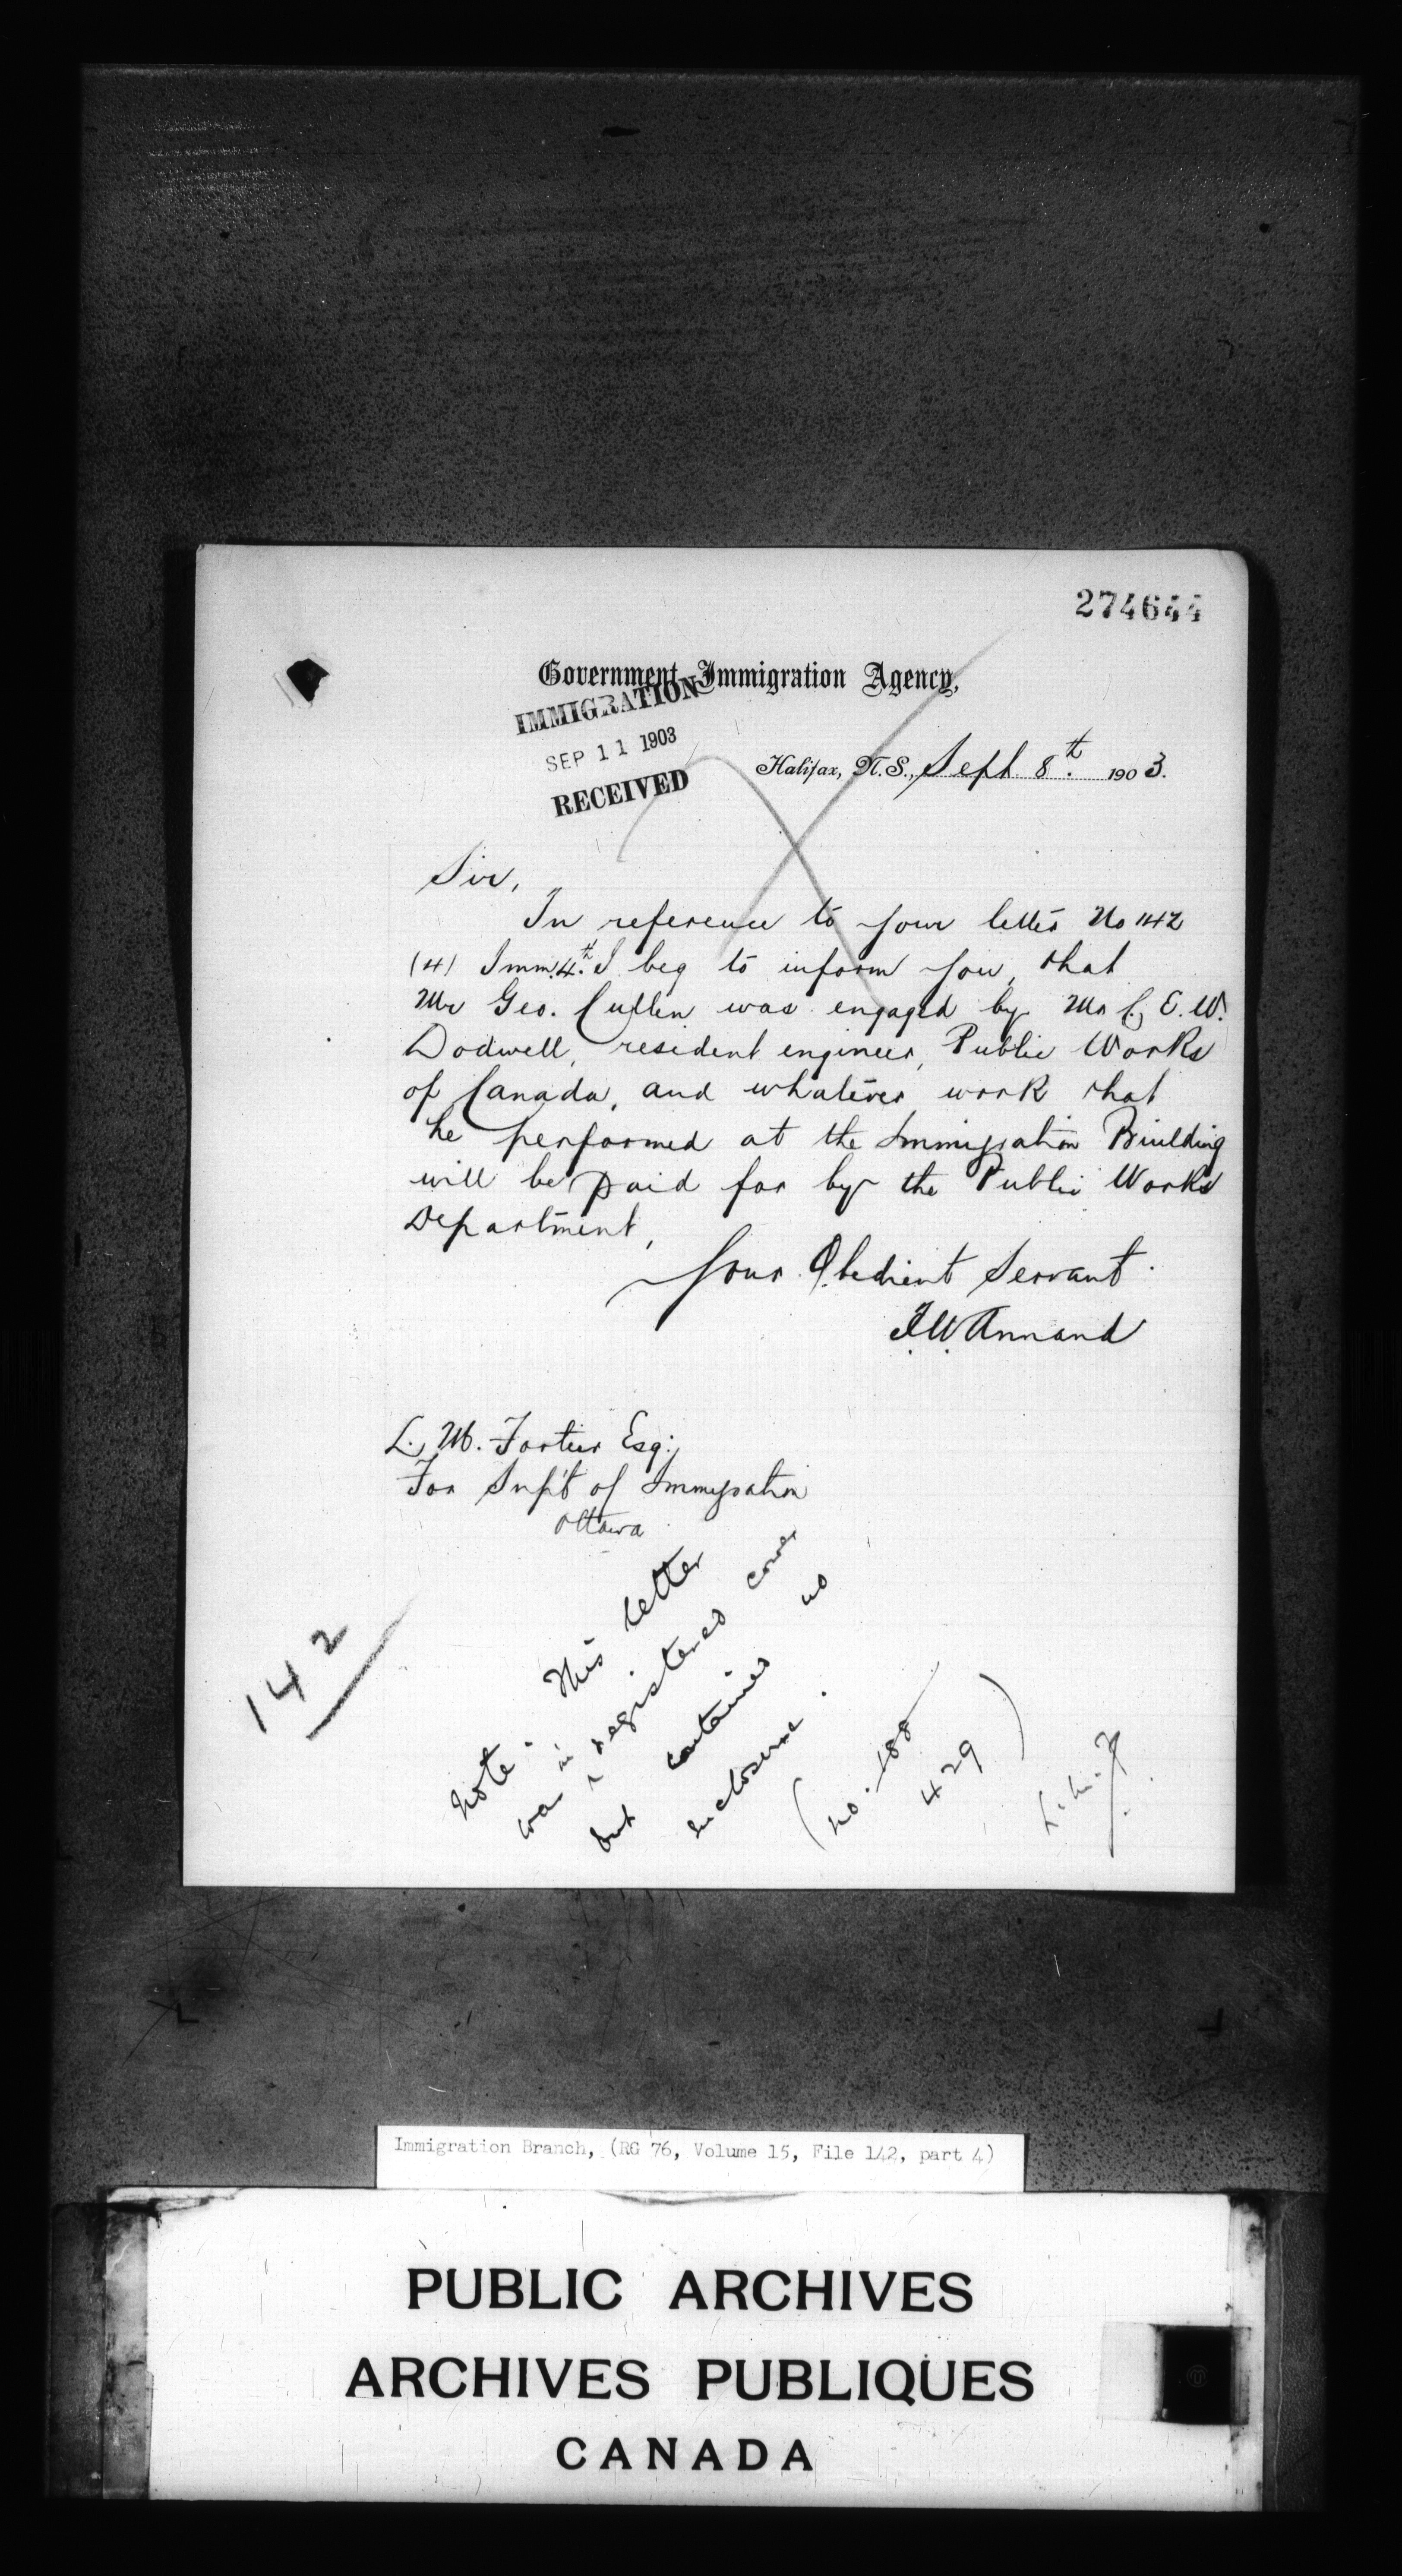 274644
Government Immigration Agency,
IMMIGRATION
SEP 11 1903
RECEIVED
Halifax, N.S., Sept 8th. 1903.
Sir,
In reference to your letter No 142
(4) Imm. 4th. I beg to inform you, that
Mr Geo. Cullen was engaged by Mr C. E. W.
Dodwell, resident engineer, Public Works
of Canada, and whatever work that
he performed at the Immigration Building
will be paid for by the Public Works
Department,
Your Obedient Servant.
F.W. Annand
L. M. Fortier Esq;
For Supt of Immigration
Ottawa
142
Note. This letter
was in registered cover
but contained no
inclosure.
(No. 188
429)
L.M.F.
Immigration Branch, (RG 76, Volume 15, File 142, part 4)
PUBLIC ARCHIVES
ARCHIVES PUBLIQUES
CANADA